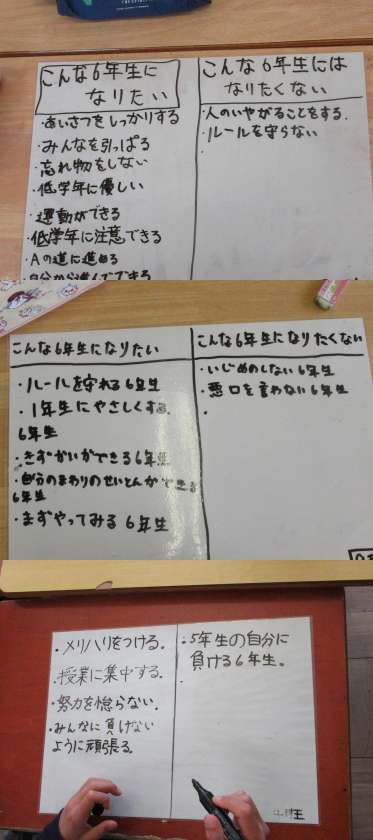 こんな6年生に
なりたい
・あいさつをしっかりする
・みんなを引っぱる
・忘れ物をしない
・低学年に優しい
・運動ができる
・低学年に注意できる
・Aの道に進める
・自分から進んでできる
こんな6年生には
なりたくない
・人のいやがることをする.
・ルールを守らない
・
こんな6年生になりたい
・ルールを守れる6年生
・1年生にやさしくする
6年生
・きずかいができる6年生
・自分のまわりのせいとんができる
6年生
・まずやってみる6年生
こんな6年生になりたくない
・いじめのしない6年生
・悪口を言わない6年生
・
・メリハリをつける.
・授業に集中する.
・努力を怠らない.
・みんなに負けない
ように頑張る.
・5年生の自分に
負ける6年生。
・